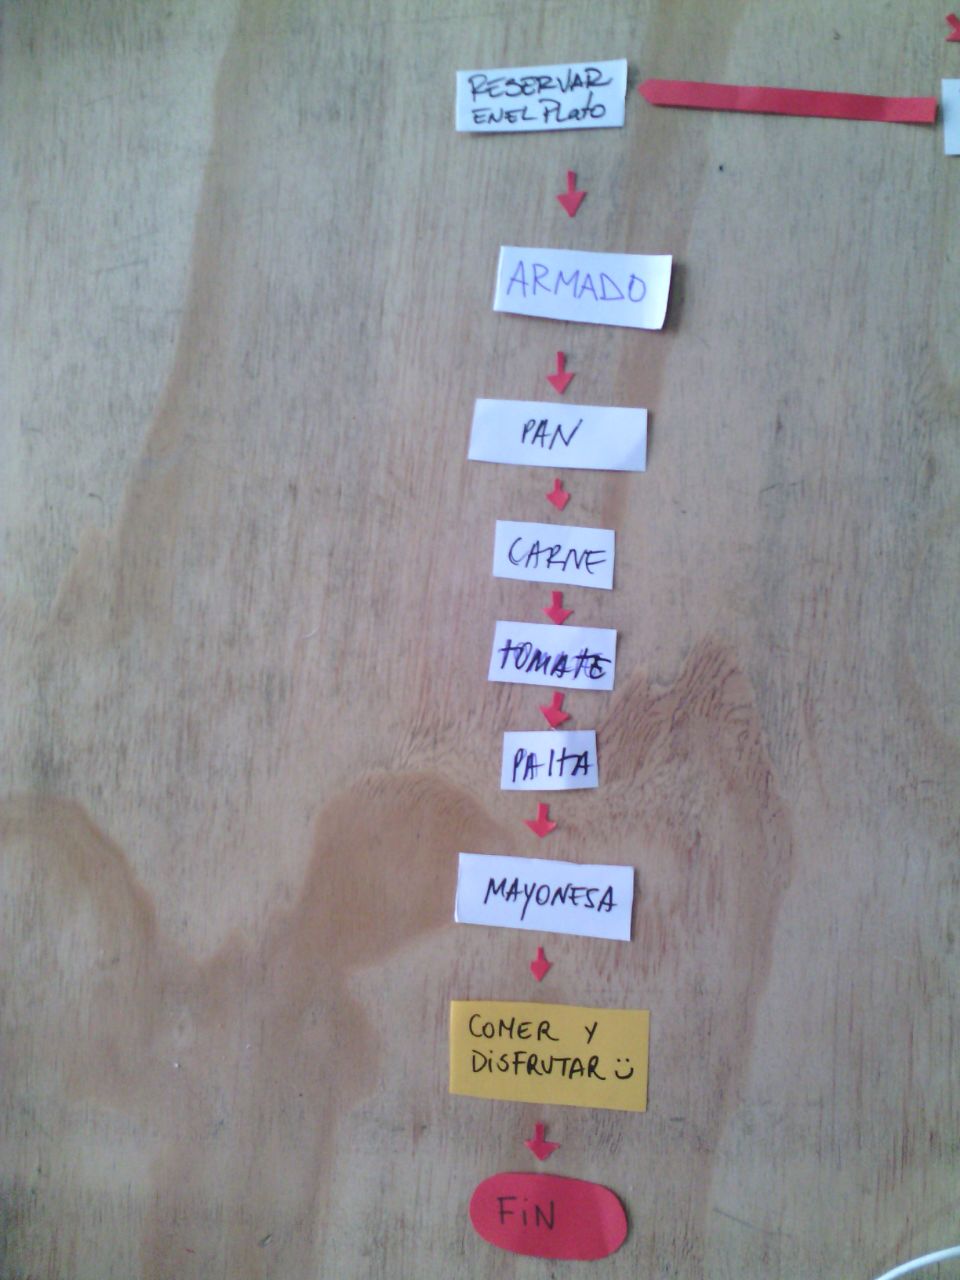 RESERVAR
EN EL Plato
ARMADO
PAN
CARNE
TOMATE
PAltA
MAYONESA
COMER Y
DiSFRUTAR :)
FiN